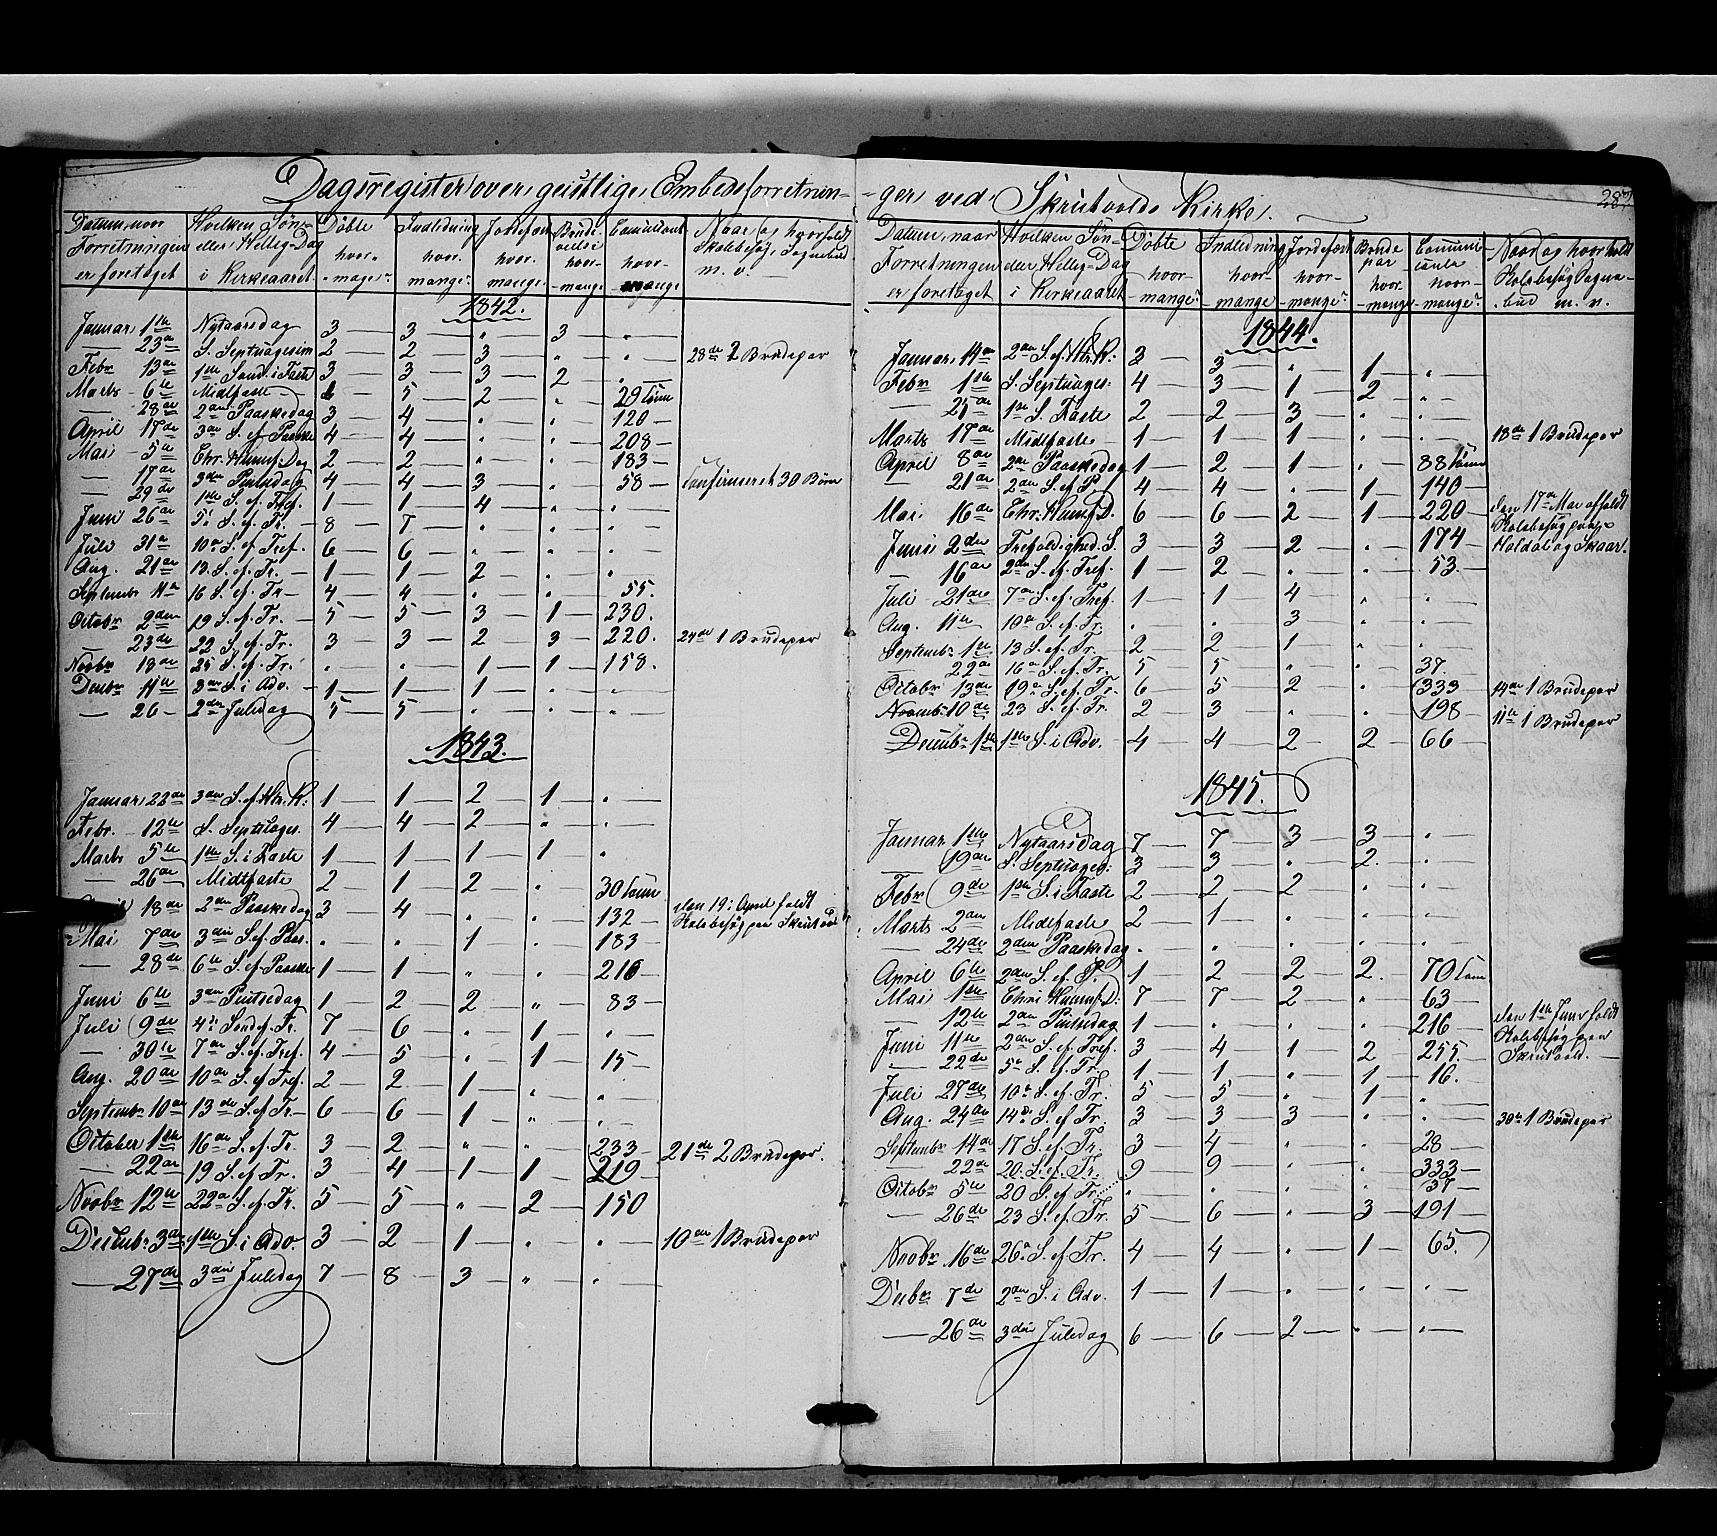 Dagsregister over geistlige Embedsforretnin-
Datum, naar Forretningen er foretaget | Hvilken Søn- eller Hellig-Dag i Kirkeaaret | Døbte hvor- mange? | Indledning hvor- mange? | Jordefæst hvor- mange | Brude hvor- mange | hvor- mange | Naar og hvor holdt Skolebesøg, Sognebud m. v.
1842.
Januar 1ste Nytaarsdag 3 3 " 3 "
— 23de S. Septuagesim 2 2 3 " " 28de 2 Brudepar
Febr 13de 1ste Sønd. i Faste 3 3 3 2 "
Marts 6te Midfaste 5 2 " 29 Com
— 28de 2den Paaskedag 3 4 " " 120
April 17de 3die S. ef Paaske 4 4 " " 208
Mai 5te Chr. Himmf. Dag 2 2 " " 183
— 17de 3die Pintsedag 4 4 3 " 58 Confirmeret 30 Børn
— 29de 1ste S. ef. Tref. 1 1 4 " "
Juni 26de 5te S. ef. Tr. 8 7 " " "
Juli 31te 10de S. ef Tref. 6 6 " " "
Aug. 21de 13. S. ef. Tr. 1 1 2 " "
Septembr 11te 16 S. ef Tr 4 4 " " 55.
Octobr 2den 19 S. ef Tr. 5 5 3 1 230.
23de 22 S. ef. Tr. 3 3 2 3 220. 24de 1 Brudepar
Novbr 13de 25 S. ef. Tr. " " 1 1 158.
Decbr 11te 3die S. i Adv. 1 1 1 " "
— 26 2den Juledag 5 5 " " "
1843.
Januar 22de 3die S. ef. Htr. K: 1 1 2 1 "
Febr. 12te S. Septuages. 4 4 2 " "
Marts 5te 1ste S. i Faste 1 1 1 1 "
— 26de Midfaste 2 1 2 " 30 Com
18de 2den Paaskedag 3 4 132 den 19: April holdt Skolebesøg paa
Mai 7de 3die S. ef Paas. " " 1 183
— 28de 6te S. ef Paaske 1 1 " " 216
Juni 6te 3die Pintsedag 1 2 2 " 83
Juli 9de 4de Sønd ef. Tr. 7 6 " 1 "
— 30te 7de S. ef. Tref. 4 5 " 1 15
Aug. 20de 10de S. ef Tref. 2 2 1 " "
Septembr 10de 13de S. ef Tr. 6 6 1 " "
October 1ste 16de S. ef Tr. 3 2 " " 233 21de 2 Brudepar.
— 22de 19 S. ef Tr. 3 4 1 1 219
Novbr 12te 22de S. ef Tr. 5 5 " 2 150
Decbr. 3die 1ste S. i Adv. 3 2 1 " " 10de 1 Brudepar
— 27de 3die Juledag 7 8 3 " "
-ger ved Skrutvolds Kirke.
Datum, naar Forretningen er foretaget | Hvilken Søn- eller Hellig-Dag i Kirkeaaret | Døbte hvor- mange? | Indledning hvor- mange | Jordefæst hvor- mange? | Brude par hvor- mange | Communi- canter hvor- mange? | Naar og hvor holdt Skolebesøg Sogne- bud m. v.
1844.
Januar 14de 2den S. ef Htr. K: 3 3 " 1 "
Febr 1ste S. Septuages: 4 3 1 2 "
— 25de 1ste S. Faste 2 2 3 " "
Marts 17de Midfaste 1 1 1 " " 18de 1 Brudepar
April 8de 2den Paaskedag 1 2 1 " 88 Com
— 21de 2den S. ef P. 4 4 " 1 140
Mai 16de Chr. Himmf D. 6 6 2 1 220 den 17de Mai afholdt
Juni 2den Trefoldighed. S. 3 3 2 " 174 Skolebesøg paa
— 16de 2den S. ef. Tref. 1 2 53.
Juli 21de 7de S. ef Tref. 1 1 4 " "
Aug. 11te 10de S. ef Tr. " " 3 " "
Septembr 1ste 13 S. ef Tr. 2 2 1 " "
22de 16de S. ef Tr. 5 5 " " 37.
Octobr 13de 19de S. ef. Tr. 6 5 2 " 333 14de 1 Brudepar
Novmb. 10de 23 S. ef Tr. 2 3 " " 198 11te 1 Brudepar
Decmbr 1ste 1ste S. i Adv. 4 4 2 2 66
1845.
Januar 1ste Nytaarsdag 7 7 3 3 "
— 19de S. Septuages: 3 3 " 2. "
Febr 9de 1ste S. i Faste 2 2 2 " "
Marts 2den Midfaste 2 1 " " "
— 24de 2den Paaskedag " " " " "
April 6te 2den S. ef. P. 1 2 2 2. 70 Com
Mai 1ste Chri Himmf D: 7 7 2 " 63
— 12te 2den Pintsedag 1 " " " 216 den 1ste Juni holdt
Juni 11te 2den S. ef Tref. 3 4 1 2 255. Skolebesøg paa
— 22de 5te S. ef Tr. 1 1 " 1 16.
Juli 27de 10de S. ef Tr. 5 5 " 1 "
Aug. 24de 14de S. ef Tr. 3 3 3 " " 30te 1 Brudepar
Septembr 14de 17 S. ef Tr. 3 4 " " 28
— 22de 20 S. ef Tr. 9 9 " " 333
Octobr 5te 20 S. ef Tr. " " " " 37
— 26de 23 S. ef Tr. 5 6 " 3 191
Novbr 16de 26de S. ef Tr. 4 4 " 1 65.
Decbr 7de 2den S. i Adv. 1 1 " " "
— 26de 3die Juledag 6 6 2 " "